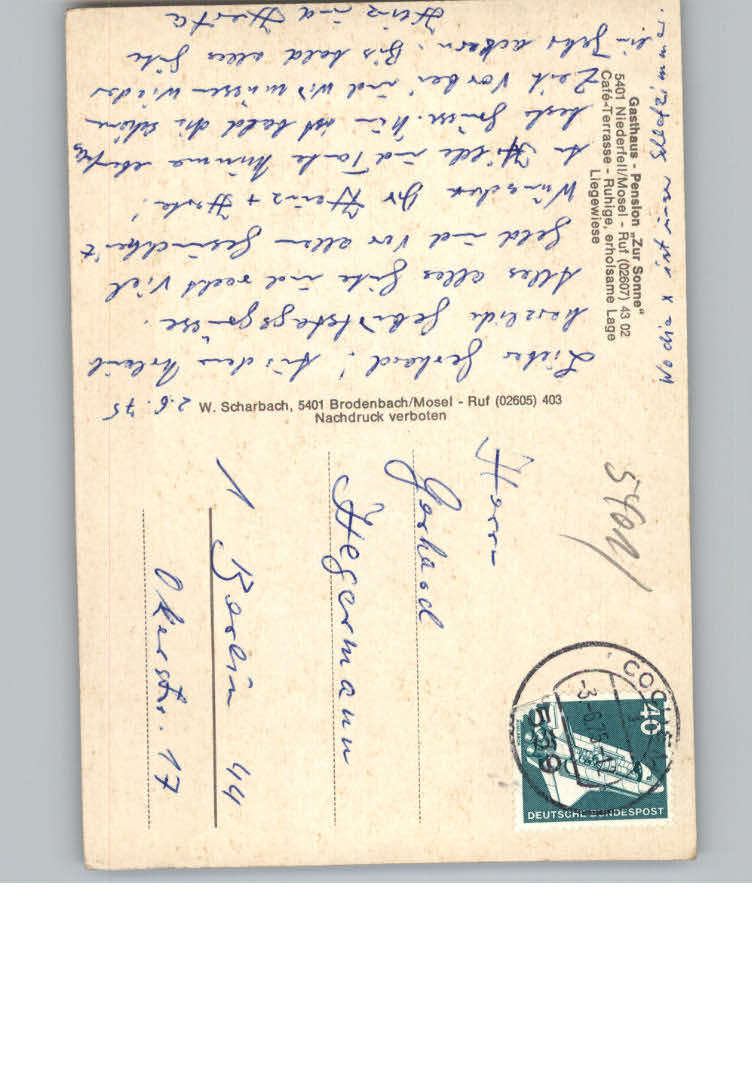 Gasthaus - Pension „Zur Sonne"
5401 Niederfell/Mosel - Ruf (02607) 43 02
Café-Terrasse - Ruhige, erholsame Lage
Liegewiese
2.6.75
Lieber Gerhard! Aus dem Urlaub
herzliche Geburtstagsgrüsse.
Alles alles Gute und recht viel
Geld und vor allem Gesundheit
Wünschen Dir Heinz + Herta!
An Hilde und Tante Minna ebenfalls
beste Grüsse. Nun ist bald die schöne
Zeit vorbei und wir müssen wieder
ein Jahr ackern. Bis bald alles Gute
Heinz und Herta
W. Scharbach, 5401 Brodenbach/Mosel - Ruf (02605) 403
Nachdruck verboten
5401/
Herrn
Gerhard
Hegermann
1 Berlin 44
Okerstr. 17
COCHEM
-3.-6.75
559
40
DEUTSCHE BUNDESPOST